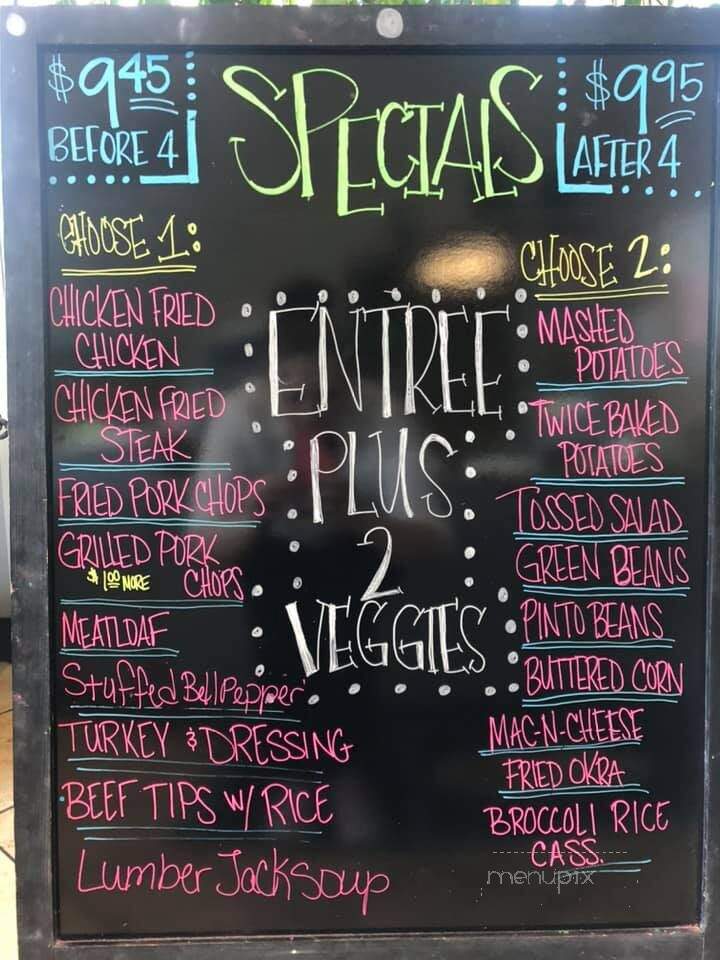 $9.45
BEFORE 4
SPECIALS
$9.95
AFTER 4
CHOOSE 1:
CHICKEN FRIED
CHICKEN
CHICKEN FRIED
STEAK
FRIED PORK CHOPS
GRILLED PORK
$1.00 MORE CHOPS
MEATLOAF
Stuffed Bell Pepper
TURKEY & DRESSING
BEEF TIPS W/ RICE
Lumber Jack Soup
ENTREE
PLUS
2
VEGGIES
CHOOSE 2:
MASHED
POTATOES
TWICE BAKED
POTATOES
TOSSED SALAD
GREEN BEANS
PINTO BEANS
BUTTERED CORN
MAC-N-CHEESE
FRIED OKRA
BROCCOLI RICE
CASS.
menupix